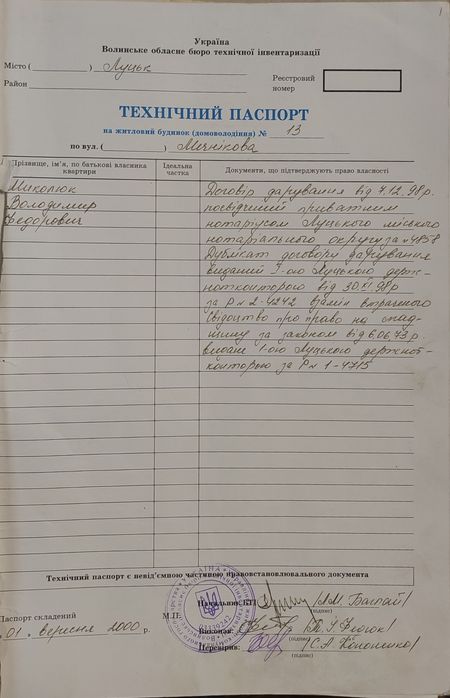 1
Україна
Волинське обласне бюро технічної інвентаризації
Місто ( ) Луцьк
Район
Реєстровий
номер
ТЕХНІЧНИЙ ПАСПОРТ
на житловий будинок (домоволодіння) № 13
по вул. ( ) Мечнікова
Прізвище, ім'я, по батькові власника
квартири
Ідеальна
частка
Документи, що підтверджують право власності
Миколюк
Володимир
Федорович
Договір дарування від 7.12.98р.
посвідчений приватним
нотаріусом Луцького міського
нотаріального округу за №4858
Дублікат договору дарування
виданий Луцькою держ-
нотконторою від 98р
за Р№ 2-4242 взамін втраченого
Свідоцтво про право на спад-
щину за законом від 6.06.73р.
видане 1-ою Луцькою держнот-
конторою за Р№ 1-4715
Технічний паспорт є невід'ємною частиною правовстановлювального документа
Паспорт складений
01. вересня 2000 р.
М.П.
Начальник БТІ
(підпис)
Виконав:
(підпис)
Перевірив:
(підпис)
УКРАЇНА